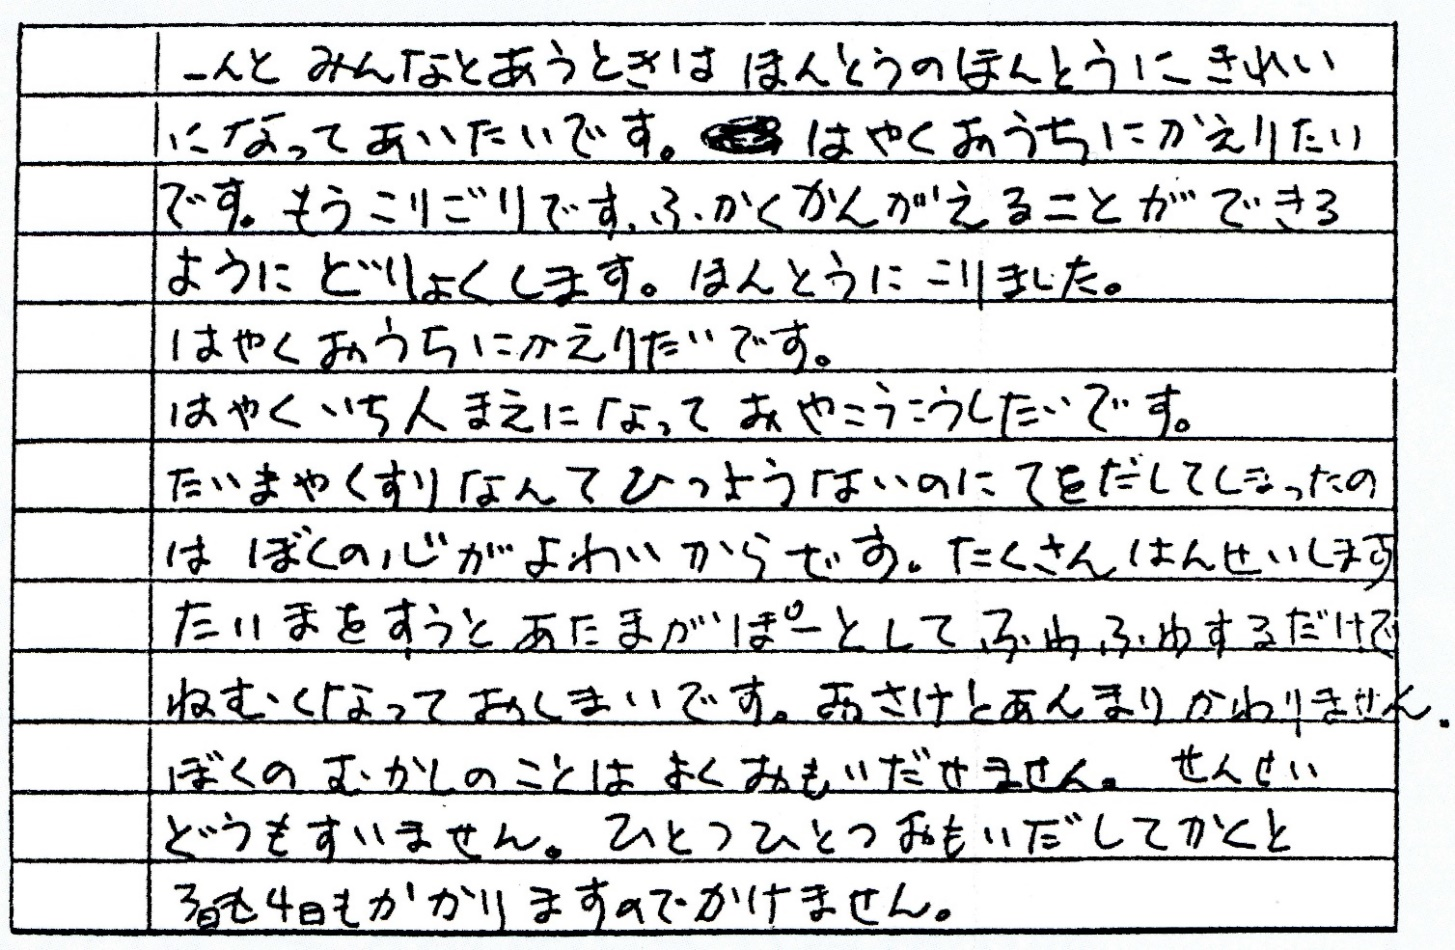 んと みんなとあうときは ほんとうのほんとうに きれい
になってあいたいです。 はやくおうちにかえりたい
です。もうこりごりです。ふかくかんがえることができる
ように どりょくします。ほんとうに こりました。
はやくおうちにかえりたいです。
はやくいち人まえになって おやこうこうしたいです。
たいまやくすりなんてひつようないのにてをだしてしまったの
は ぼくの心がよわいからです。たくさんはんせいします
たいまをすうと あたまがぽーとして ふわふわするだけで
ねむくなっておしまいです。おさけとあんまりかわりません。
ぼくのむかしのことは よくおもいだせません。 せんせい
どうもすいません。ひとつひとつおもいだしてかくと
3日も4日もかかりますのでかけません。